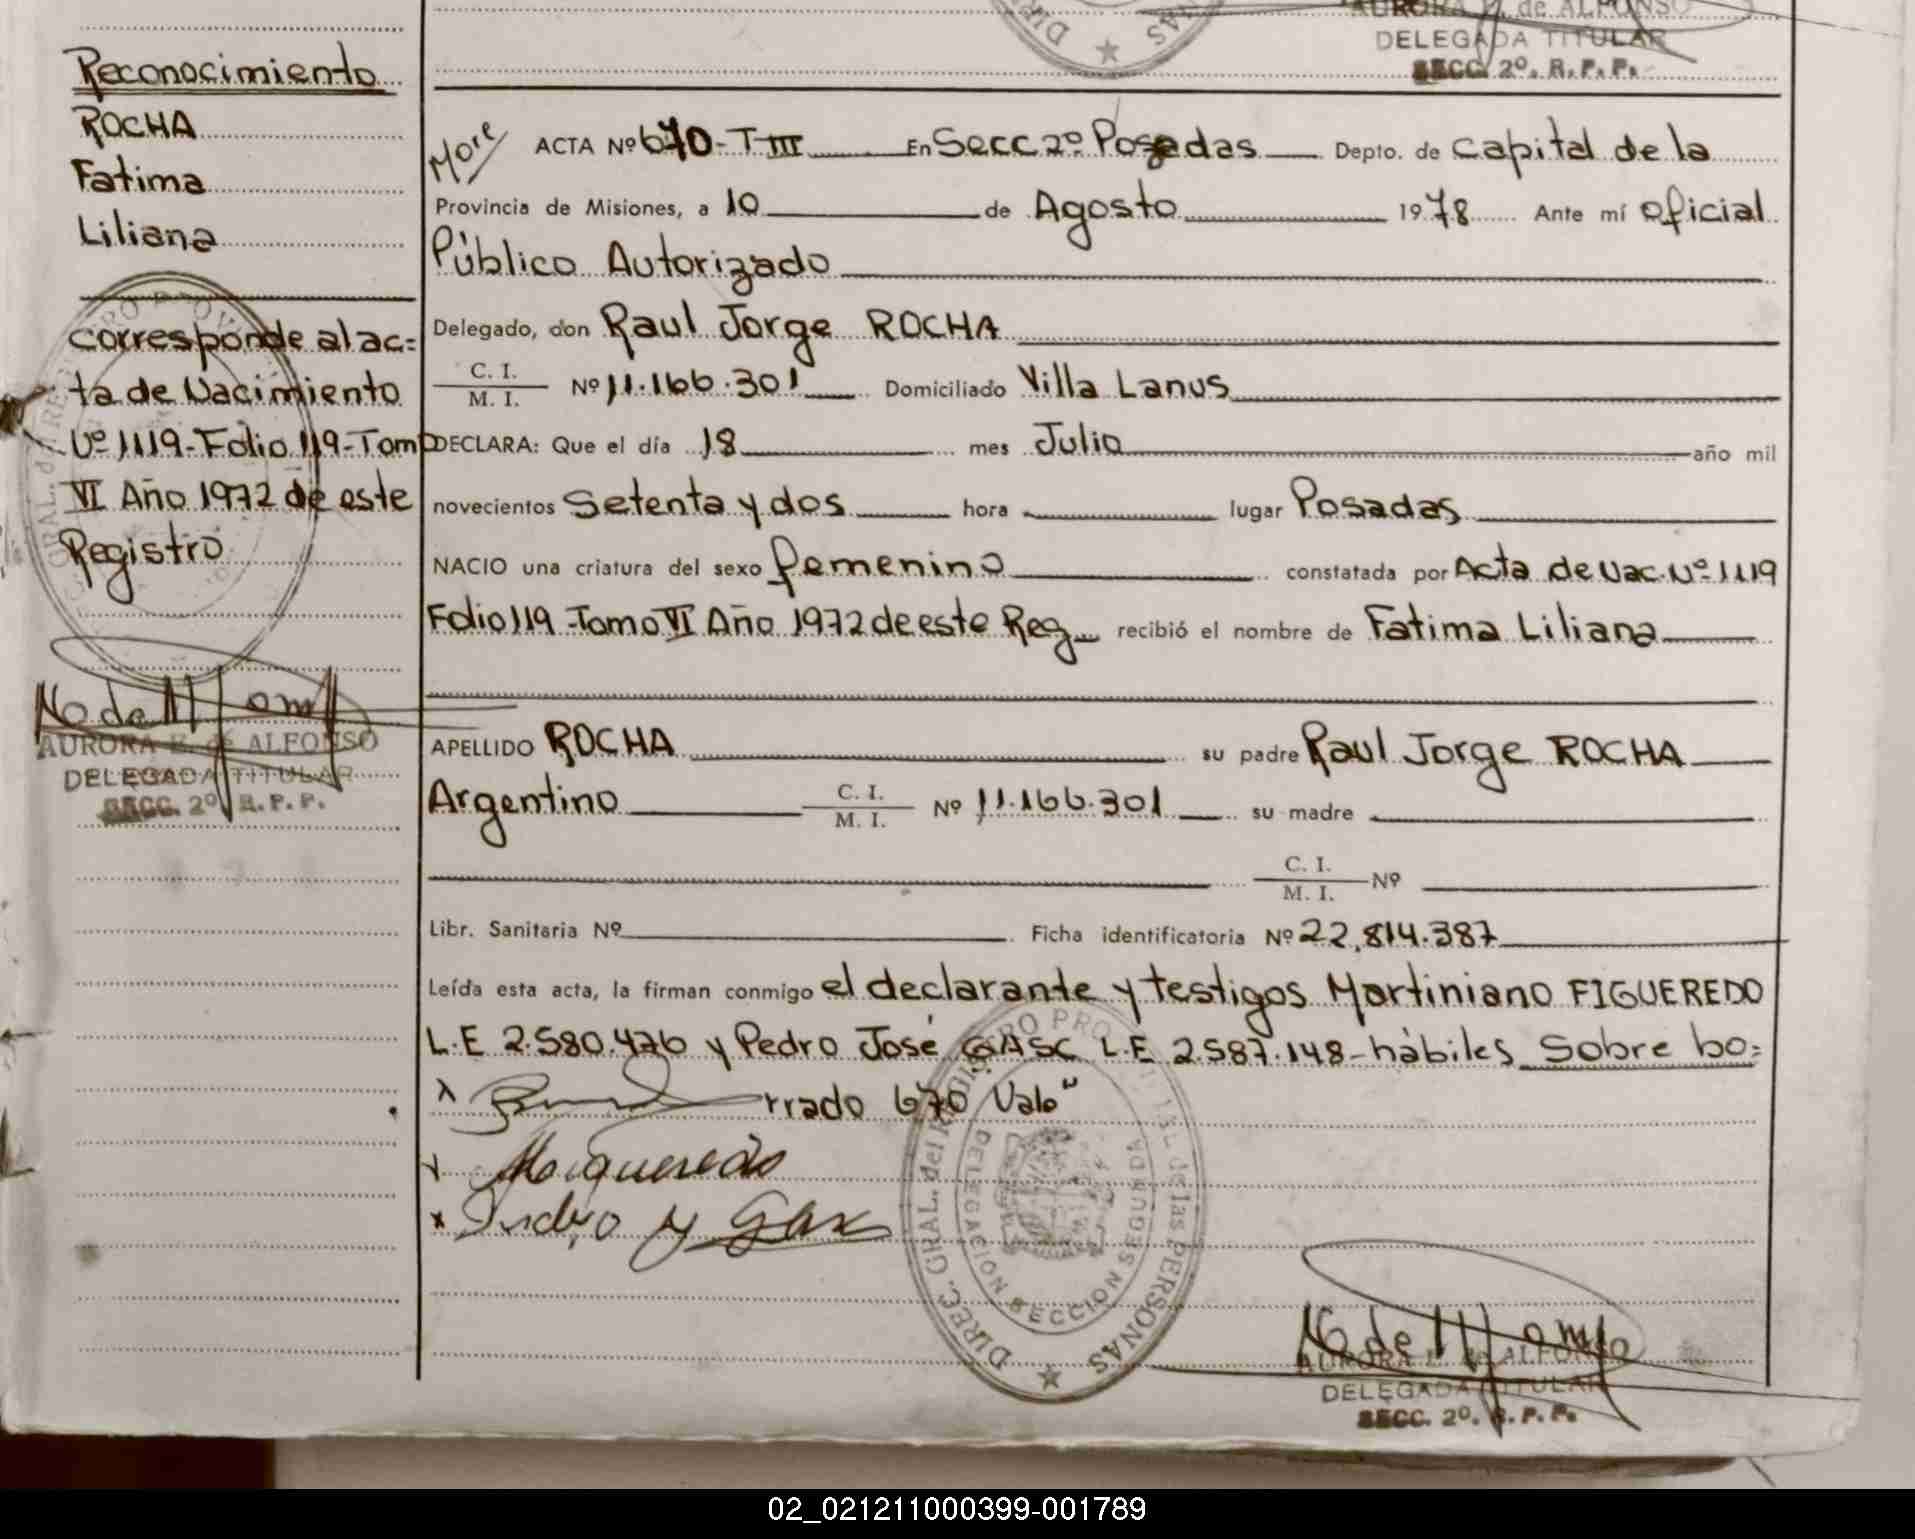 AURORA E. de ALFONSO
DELEGADA TITULAR
SECC. 2º. R. P. P.
Reconocimiento
ROCHA
Fatima
Liliana
Corresponde al ac=
ta de Nacimiento
Nº 1119-Folio 119-Tomo
VI Año 1972 de este
Registro
AURORA E. de ALFONSO
DELEGADA TITULAR
SECC. 2º R. P. P.
More
ACTA Nº 670-T III En Secc 2º Posadas Depto. de Capital de la
Provincia de Misiones, a 10 de Agosto 1978 Ante mí Oficial
Público Autorizado
Delegado, don Raul Jorge ROCHA
C. I. / M. I. Nº 11.166.301 Domiciliado Villa Lanus
DECLARA: Que el día 18 mes Julio año mil
novecientos Setenta y dos hora lugar Posadas
NACIO una criatura del sexo femenino constatada por Acta de Nac. Nº 1119
Folio 119-Tomo VI Año 1972 de este Reg recibió el nombre de Fatima Liliana
APELLIDO ROCHA su padre Raul Jorge ROCHA
Argentino C. I. / M. I. Nº 11.166.301 su madre
C. I. / M. I. Nº
Libr. Sanitaria Nº Ficha identificatoria Nº 22,814.387
Leída esta acta, la firman conmigo el declarante y testigos Martiniano FIGUEREDO
L.E 2.580.476 y Pedro José GASC L.E 2.587.148-hábiles Sobre bo=
rrado 670 Vale"
Pedro J Gasc
DIREC. GRAL. del REGISTRO PROVINCIAL de las PERSONAS
DELEGACION SECCION SEGUNDA
AURORA E. de ALFONSO
DELEGADA TITULAR
SECC. 2º. R. P. P.
02_021211000399-001789